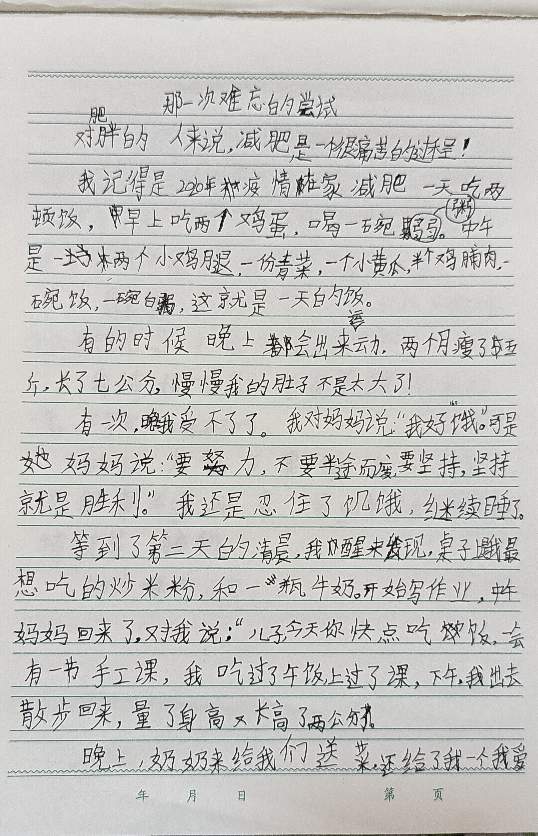 那一次难忘的尝试
对肥胖的人来说,减肥是一个很痛苦的过程!
我记得是2020年疫情在家减肥一天吃两
顿饭,早上吃两个鸡蛋,喝一碗粥。中午
是两个小鸡腿,一份青菜,一个小黄瓜,半个鸡脯肉,一
碗饭,一碗白粥,这就是一天的饭。
有的时候晚上都会出来运动,两个月瘦了五
斤,长了七公分,慢慢我的肚子不是太大了!
有一次,我受不了了。我对妈妈说:“我好饿”。可是
妈妈说:“要努力,不要半途而废要坚持,坚持
就是胜利。”我还是忍住了饥饿,继续睡了。
等到了第二天的清晨,我醒来发现,桌子上我最
想吃的炒米粉,和一瓶牛奶。开始写作业,中午
妈妈回来了,对我说:“儿子今天你快点吃饭,会
有一节手工课,我吃过了午饭,上过了课,下午,我出去
散步回来,量了身高又长高了两公分。
晚上,奶奶来给我们送菜,还给了我一个我爱
年 月 日 第 页